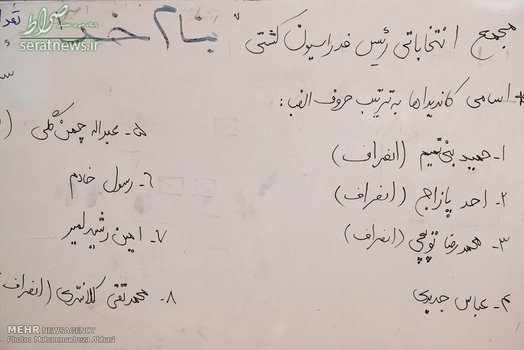 بنام خدا
مجمع انتخاباتی رئیس فدراسیون کشتی
* اسامی کاندیداها به ترتیب حروف الفبا:
۱- حمید بنی‌تمیم (انصراف)
۲- احد پازاج (انصراف)
۳- محمدرضا توپچی (انصراف)
۴- عباس جدیدی
۵- عبداله چمن‌گلی
۶- رسول خادم
۷- امین رشیدلمیر
۸- محمدتقی کلانتری (انصراف
صراط
seratnews.ir
MEHR NEWSAGENCY
Photo: Mohammadreza Abbasi